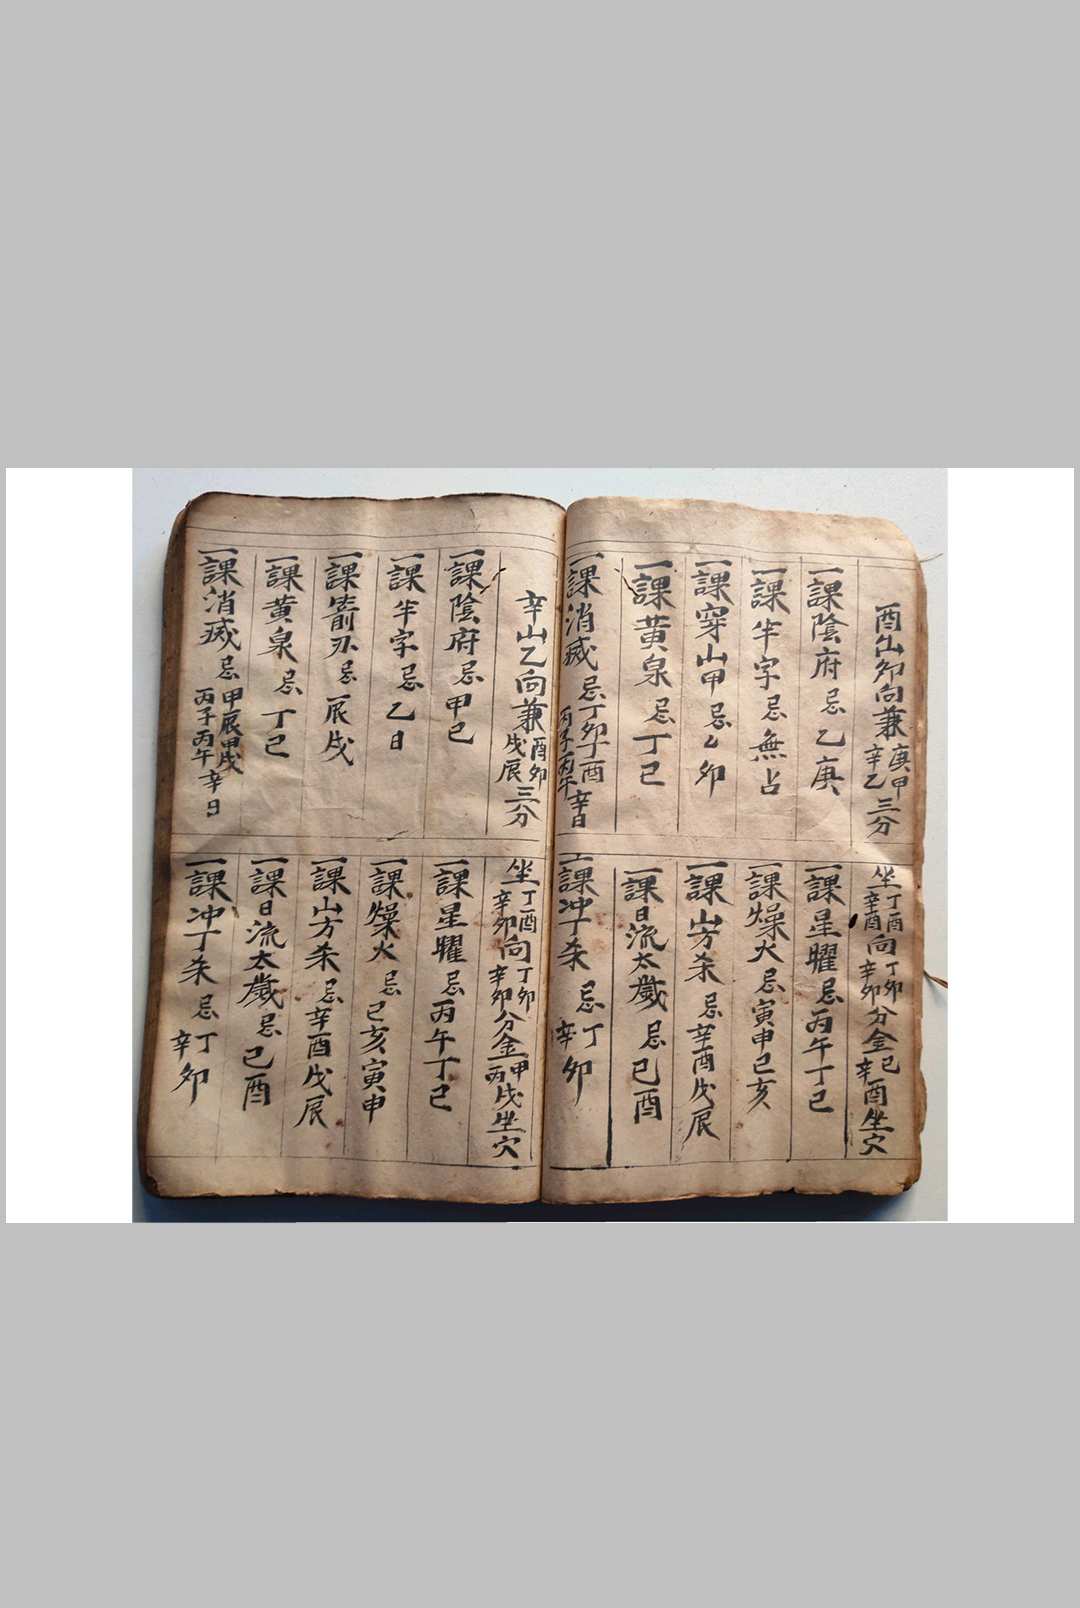 酉山卯向兼庚甲辛乙三分
一課陰府忌乙庚
一課半字忌無占
一課穿山甲忌乙卯
一課黄泉忌丁巳
一課消滅忌丁卯丁酉丙子丙午辛日
坐丁酉辛酉向丁卯辛卯分金己酉辛酉坐穴
一課星曜忌丙午丁巳
一課燥火忌寅申己亥
一課山方杀忌辛酉戊辰
一課日流太歲忌己酉
一課冲丁杀忌丁卯辛卯
辛山乙向兼酉卯戌辰三分
一課陰府忌甲己
一課半字忌乙日
一課箭刃忌辰戌
一課黄泉忌丁己
一課消滅忌甲辰甲戌丙子丙午辛日
坐丁酉辛卯向丁卯辛卯分金甲戌丙戌坐穴
一課星曜忌丙午丁巳
一課燥火忌己亥寅申
一課山方杀忌辛酉戊辰
一課日流太歲忌己酉
一課冲丁杀忌丁卯辛卯